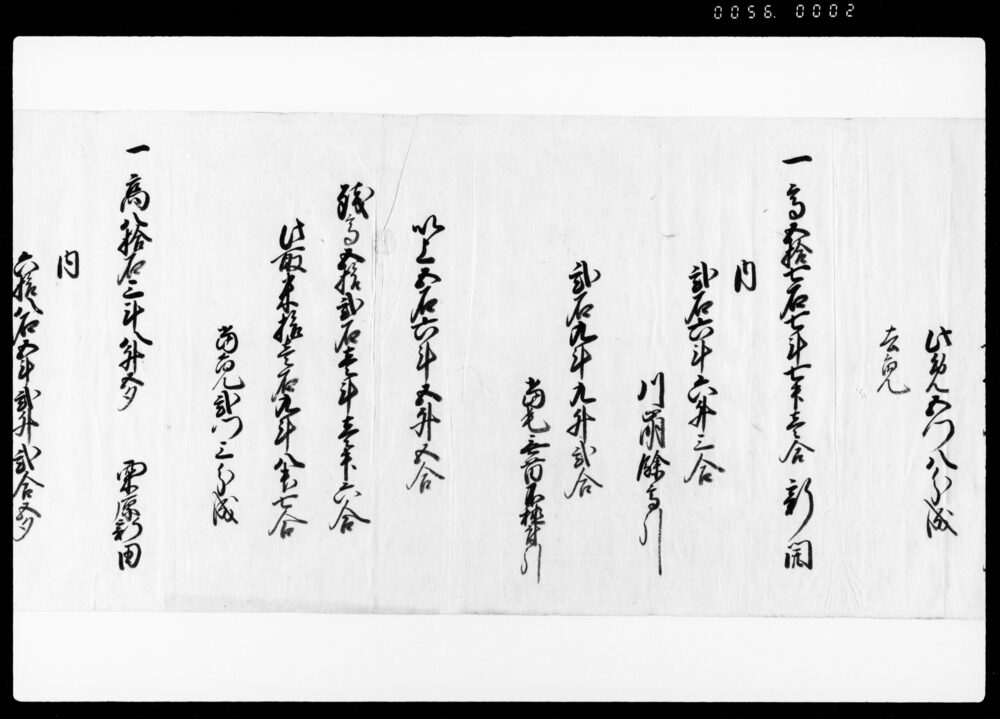 0056. 0002
此免五ツ八分成
去免
一 高五拾七石七斗七升壱合 新開
内
弐石六斗六升三合
川崩除高引
弐石九斗九升弐合
当毛
引
以上五石六斗五升五合
残高五拾弐石壱斗壱升六合
此取米拾壱石九斗八升七合
当免弐ツ三分成
一 高八拾石三斗八升五夕 栗原新田
内
六拾八石五斗弐升弐合五夕